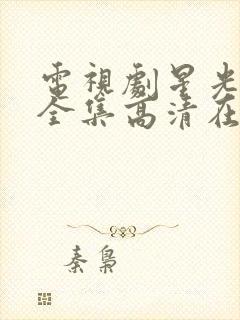 電視劇星光
全集高清在
秦梟